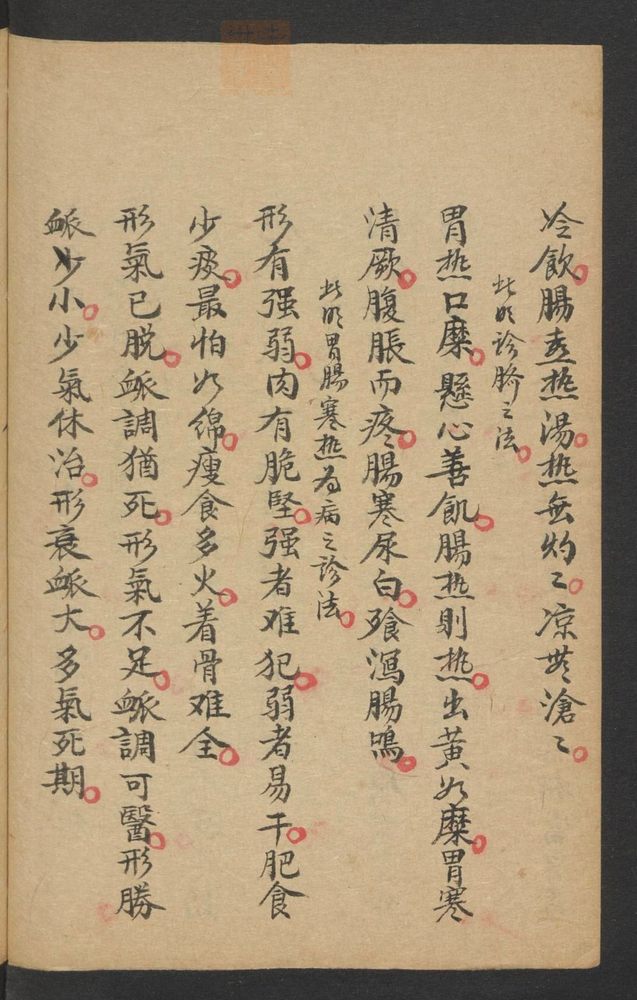 冷飲。腸喜热湯。热無灼〻。凉無滄〻。
此明診臍之法。
胃热口糜。懸心善飢。腸热則热。出黄如糜。胃寒
清厥。腹脹而疼。腸寒尿白。飱瀉腸鳴。
此明胃腸寒热為病之診法。
形有强弱。肉有脆堅。强者难犯。弱者易干。肥食
少痰。最怕如綿。瘦食多火。着骨难全。
形氣已脱。衇調猶死。形氣不足。衇調可醫。形勝
衇少小。少氣休治。形衰衇大。多氣死期。